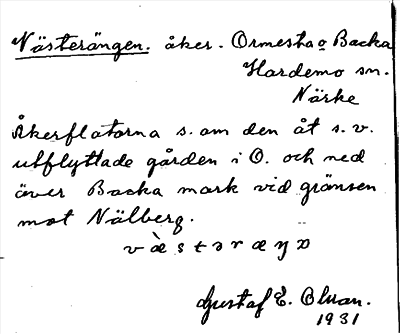 Västerängen. åker. Ormesta o Backa
Hardemo sn.
Närke
Åkerflatorna s. om den åt s.v.
utflyttade gården i O. och ned
över Backa mark vid gränsen
mot Nälberg.
v æ̀ s t ə r æ ŋ ɒ
Gustaf E. Olsson.
1931